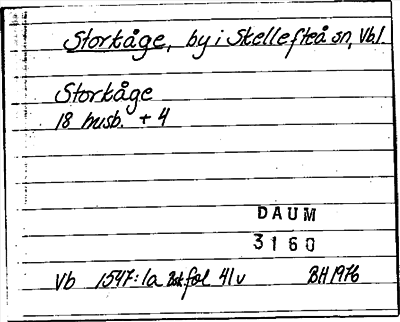 Storkåge, by i Skellefteå sn, Vb l.
Storkåge
18 husb. + 4
DAUM
3160
Vb 1547:1a fol 41v BH 1976